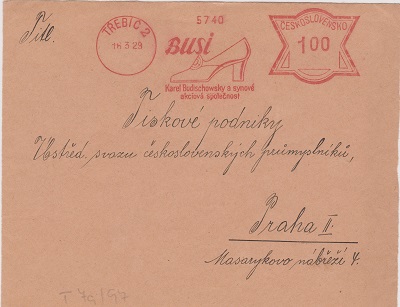 Titl.
TŘEBÍČ 2
16.3.29
5740
BUSI
Karel Budischowsky a synové
akciová společnost
ČESKOSLOVENSKO
100
Tiskové podniky
Ústřed. svazu československých průmyslníků,
Praha II.
Masarykovo nábřeží 4.
T 79/97